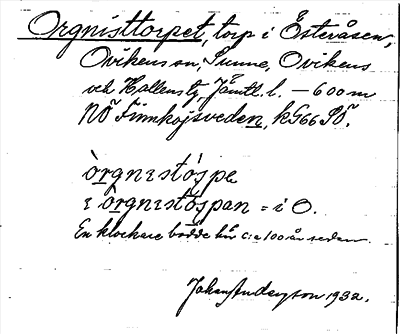 Orgnisttorpet, torp i Östervåsen,
Ovikens sn, Sunne, Ovikens
och Hallens tg, Jämtl. l. — 600 m
NÖ Finnhöjsveden, k. G66 SÖ.
òrgnɪstöspe
i òrgnɪstöspan = i O.
En klockare bodde här c:a 100 år sedan.
Johan Anderzson 1932.